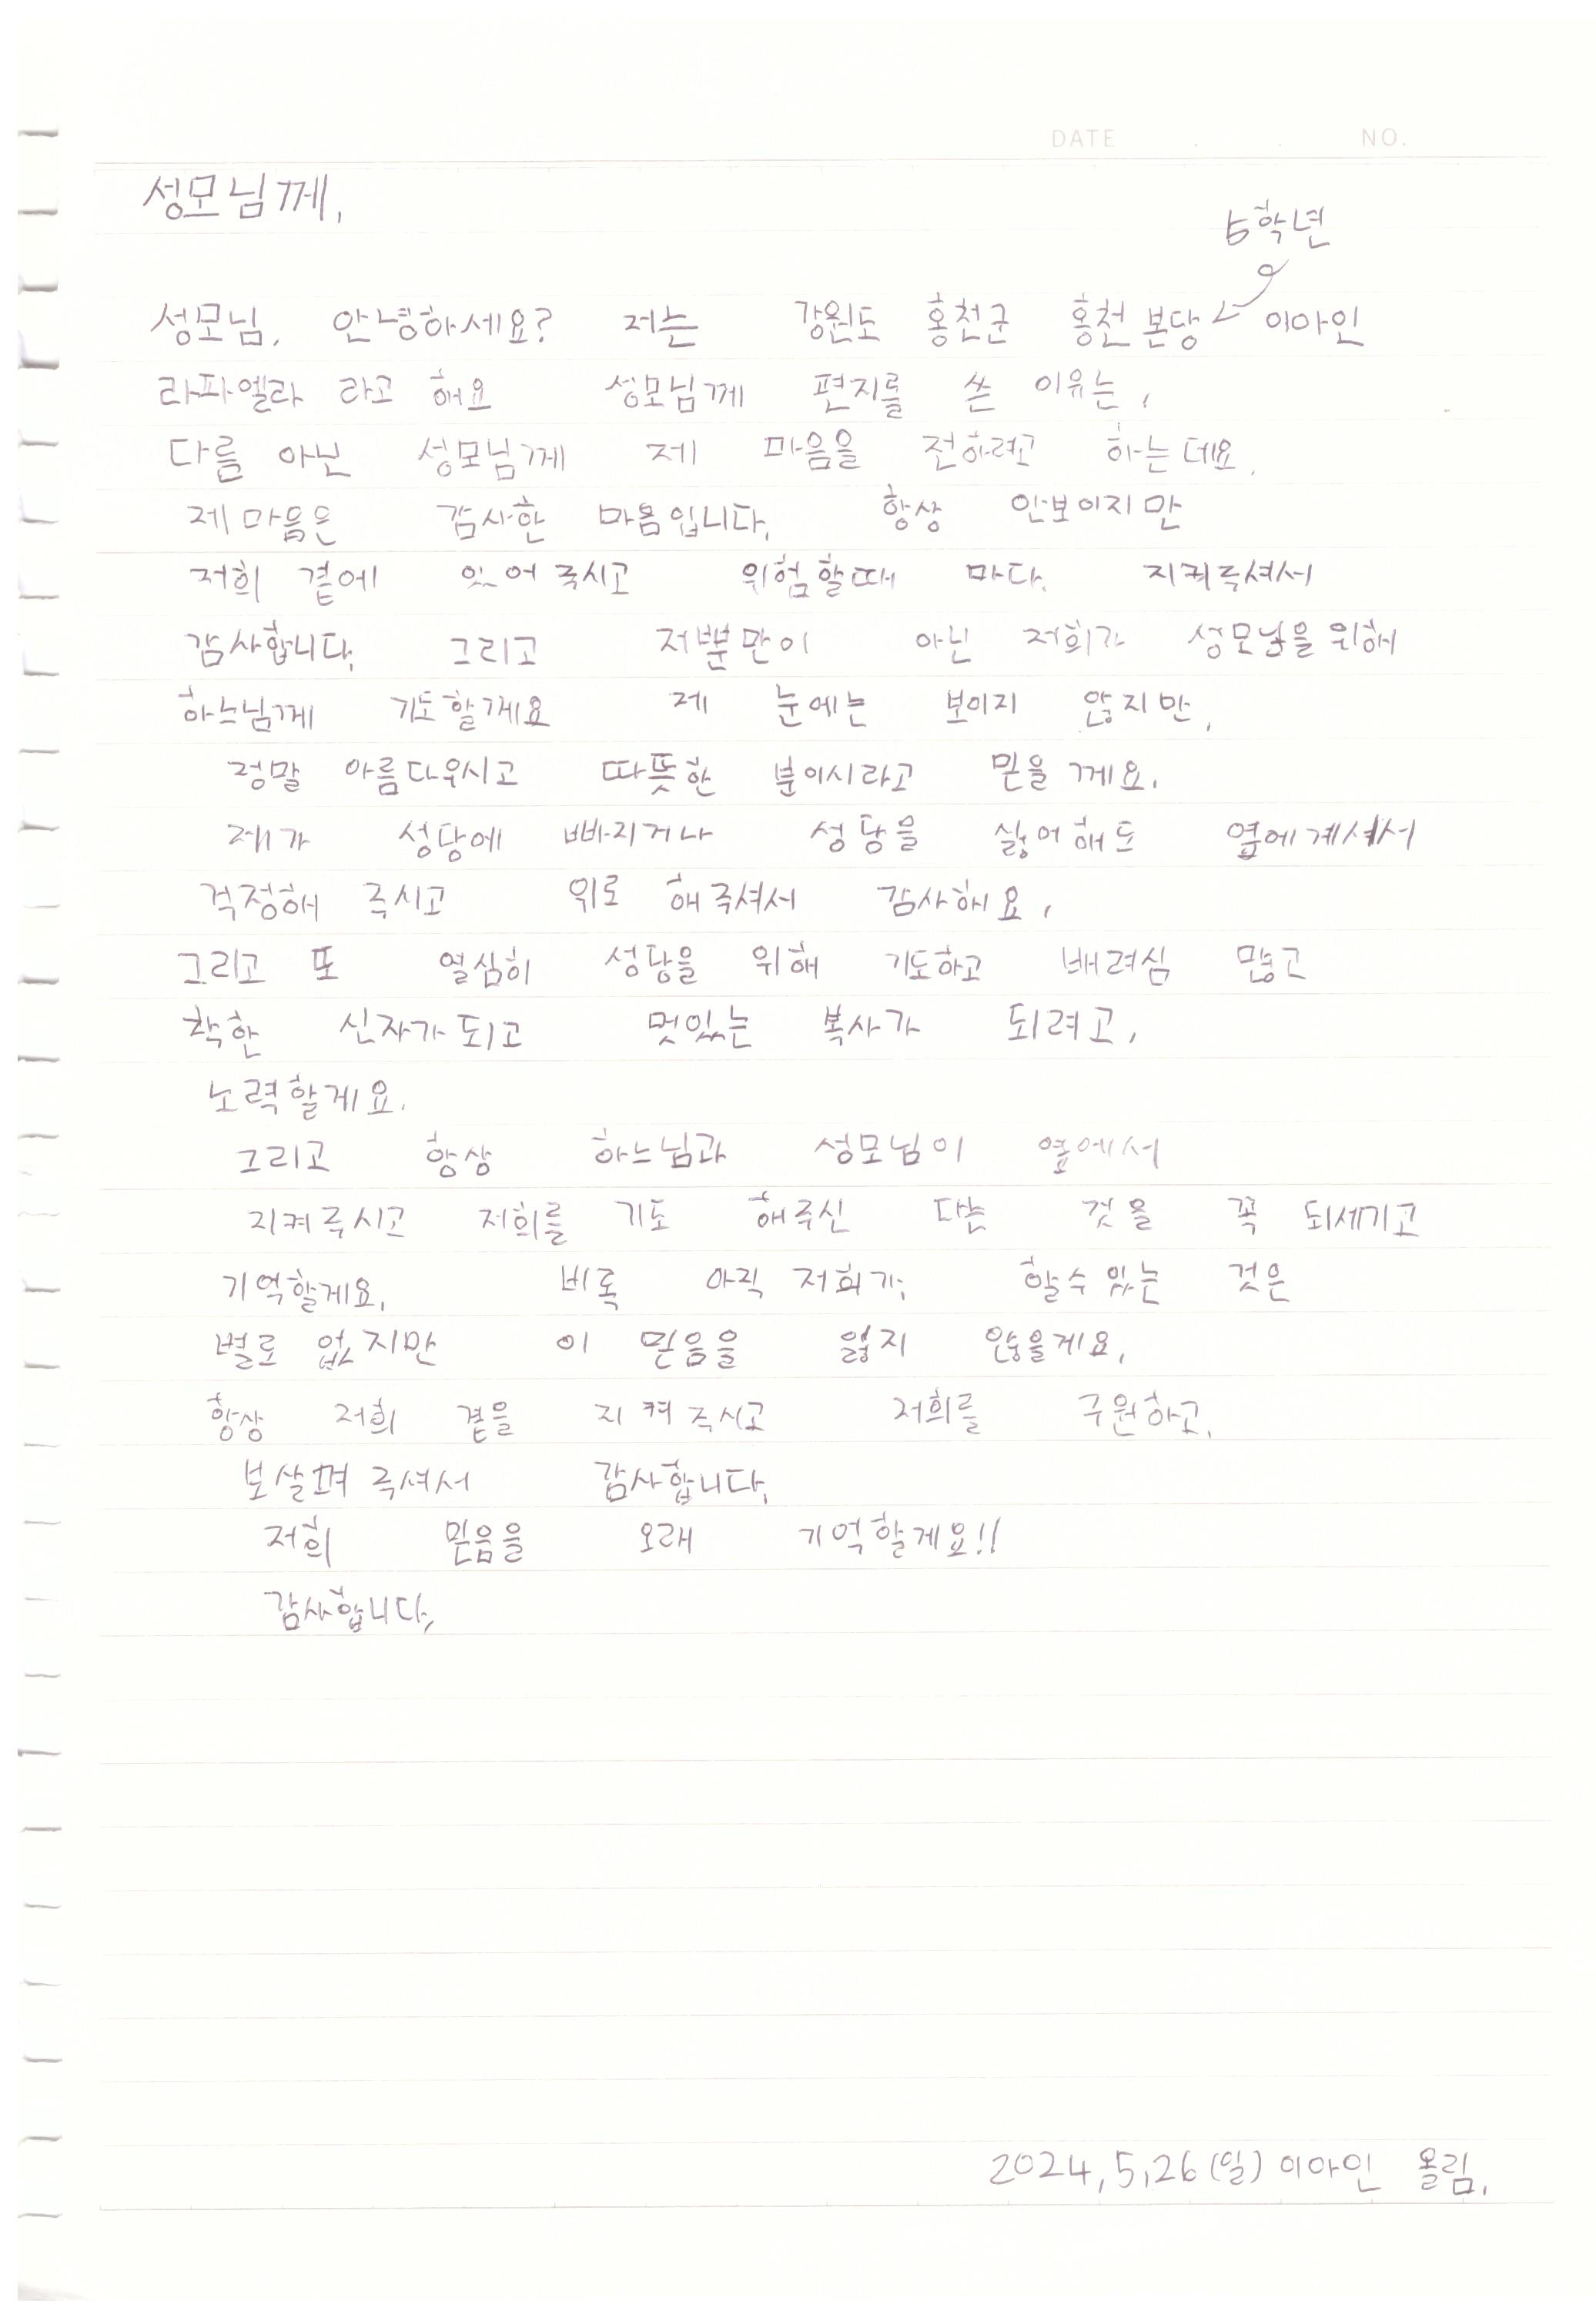 DATE . . NO.
성모님께,
5학년
성모님, 안녕하세요? 저는 강원도 홍천군 홍천 본당 이아인
라파엘라 라고 해요 성모님께 편지를 쓴 이유는,
다름 아닌 성모님께 제 마음을 전하려고 하는데요.
제 마음은 감사한 마음입니다. 항상 안보이지만
저희 곁에 있어 주시고 위험할때 마다. 지켜주셔서
감사합니다. 그리고 저뿐만이 아닌 저희가 성모님을 위해
하느님께 기도할께요 제 눈에는 보이지 않지만,
정말 아름다우시고 따뜻한 분이시라고 믿을께요.
제가 성당에 빠지거나 성당을 싫어해도 옆에계셔서
걱정해 주시고 위로 해주셔서 감사해요,
그리고 또 열심히 성당을 위해 기도하고 배려심 많고
착한 신자가 되고 멋있는 복사가 되려고,
노력할게요.
그리고 항상 하느님과 성모님이 옆에서
지켜주시고 저희를 기도 해주신 다는 것을 꼭 되세기고
기억할게요. 비록 아직 저희가, 할수있는 것은
별로 없지만 이 믿음을 잃지 않을게요,
항상 저희 곁을 지켜주시고 저희를 구원하고,
보살펴 주셔서 감사합니다.
저희 믿음을 오래 기억할게요!!
감사합니다.
2024,5,26(일) 이아인 올림.